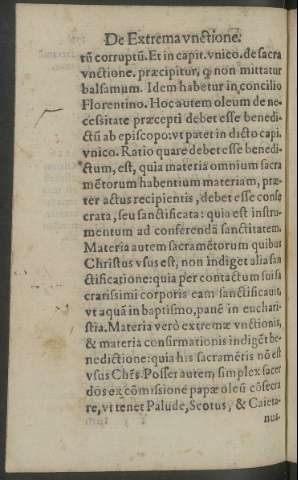 De Extrema vnctione.
tũ corruptũ. Et in capit. vnico. de sacra
vnctione. præcipitur, ꝙ non mittatur
balsamum. Idem habetur in concilio
Florentino. Hoc autem oleum de ne-
cessitate præcepti debet esse benedi-
ctũ ab episcopo: vt patet in dicto capi.
vnico. Ratio quare debet esse benedi-
ctum, est, quia materia omnium sacra
mẽtorum habentium materiam, præ-
ter actus recipientis, debet esse conse
crata, seu sanctificata: quia est instru-
mentum ad conferendã sanctitatem.
Materia autem sacramẽtorum quibus
Christus vsus est, non indiget alia san
ctificatione: quia per contactum sui sa
cratissimi corporis eam sanctificauit,
vt aquã in baptismo, panẽ in euchari-
stia. Materia verò extremæ vnctionis,
& materia confirmationis indigẽt be-
nedictione: quia his sacramẽtis nõ est
vsus Chr̃s. Posset autem simplex sacer
dos ex cõmissione papæ oleũ cõsecra
re, vt tenet Palude, Scotus, & Caieta-
nus.